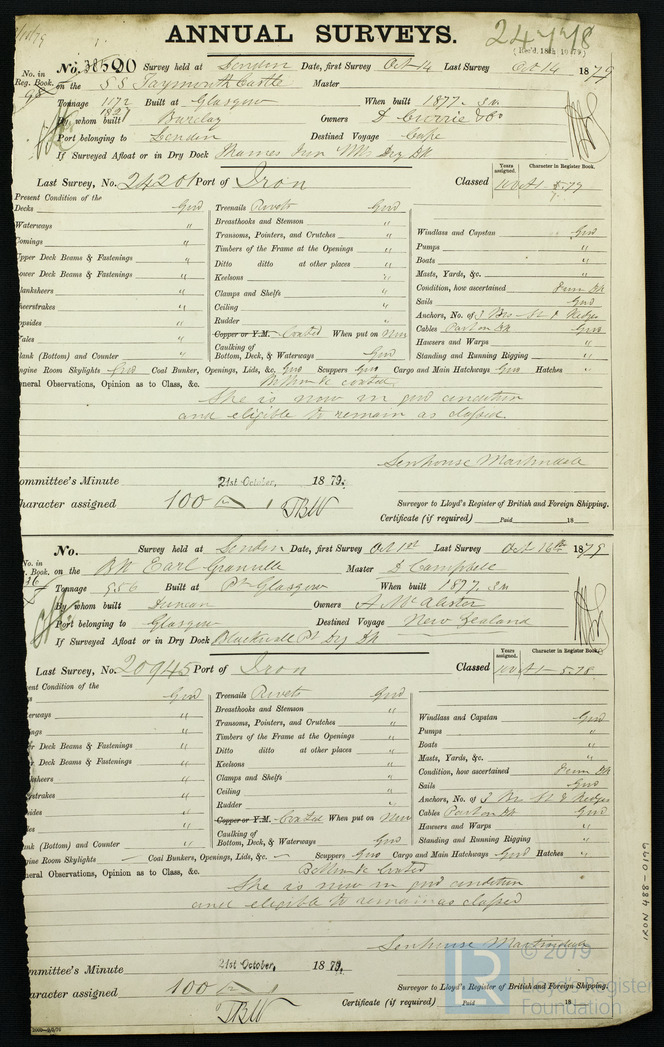 ANNUAL SURVEYS.
24778
(Rec'd. 18th 10/79.)
No. in Reg. Book. No. 20 Survey held at London Date, first Survey Oct 14 Last Survey Oct 14 1879
on the SS Taymouth Castle Master
Tonnage 1172 1827 Built at Glasgow When built 1877
By whom built Barclay Owners D Currie & Co
Port belonging to London Destined Voyage Cape
If Surveyed Afloat or in Dry Dock Thames Dry Dk
Last Survey, No. 24201 Port of Iron Classed 100 A1 5.79
Years assigned. Character in Register Book.
Present Condition of the
Decks Good
Waterways "
Comings "
Upper Deck Beams & Fastenings "
Lower Deck Beams & Fastenings "
Planksheers "
Sheerstrakes "
Topsides "
Wales "
Plank (Bottom) and Counter "
Engine Room Skylights Good
Treenails Rivets Good
Breasthooks and Stemson "
Transoms, Pointers, and Crutches "
Timbers of the Frame at the Openings "
Ditto ditto at other places "
Keelsons "
Clamps and Shelfs "
Ceiling "
Rudder "
Copper or Y.M. Coated When put on Now
Caulking of
Bottom, Deck, & Waterways Good
Windlass and Capstan Good
Pumps "
Boats "
Masts, Yards, &c. "
Condition, how ascertained From Dk
Sails Good
Anchors, No. of 3 Bro St & Kedges
Cables Part on Dk Good
Hawsers and Warps "
Standing and Running Rigging "
Coal Bunker, Openings, Lids, &c. Good Scuppers Good Cargo and Main Hatchways Good Hatches "
General Observations, Opinion as to Class, &c. Bottom &c coated
She is now in good condition
and eligible to remain as classed.
Senhouse Martindale
Committee's Minute 21st October, 1879.
Character assigned 100 A 1
TBW
Surveyor to Lloyd's Register of British and Foreign Shipping.
Certificate (if required) Paid 18
No. Survey held at London Date, first Survey Oct 1st Last Survey Oct 16th 1879
No. in Reg. Book. on the Bk Earl Granville Master D Campbell
Tonnage 956 Built at Pt Glasgow When built 1877
By whom built Duncan Owners A McAlister
Port belonging to Glasgow Destined Voyage New Zealand
If Surveyed Afloat or in Dry Dock Blackwall Pt Dry Dk
Last Survey, No. 20945 Port of Iron Classed 100 A1 5.78
Years assigned. Character in Register Book.
Present Condition of the
Good
Waterways "
Deck Beams & Fastenings "
Deck Beams & Fastenings "
Plank (Bottom) and Counter "
Engine Room Skylights
Treenails Rivets Good
Breasthooks and Stemson "
Transoms, Pointers, and Crutches "
Timbers of the Frame at the Openings "
Ditto ditto at other places "
Keelsons "
Clamps and Shelfs "
Ceiling "
Rudder "
Copper or Y.M. Coated When put on Now
Caulking of
Bottom, Deck, & Waterways Good
Windlass and Capstan Good
Pumps "
Boats "
Masts, Yards, &c. "
Condition, how ascertained From Dk
Sails Good
Anchors, No. of 3 Bro St & Kedges
Cables Part on Dk Good
Hawsers and Warps "
Standing and Running Rigging "
Coal Bunkers, Openings, Lids, &c. Scuppers Good Cargo and Main Hatchways Good Hatches "
General Observations, Opinion as to Class, &c. Bottom &c Coated
She is now in good condition
and eligible to remain as classed
Senhouse Martindale
Committee's Minute 21st October, 1879.
Character assigned 100 A 1
TBW
Surveyor to Lloyd's Register of British and Foreign Shipping.
Certificate (if required) Paid 18
LON 884-0199
© 2019
LR Lloyd's Register
Foundation